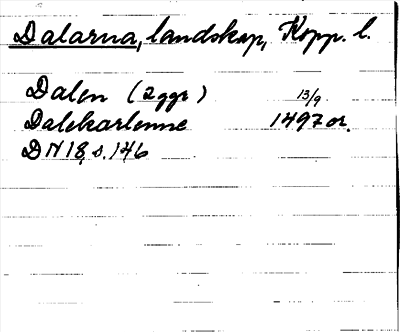 Dalarna, landskap, Kopp. l.
Dalen (2 ggr) 13/9
Dalekarlenne 1497 or.
DN 18, s. 146